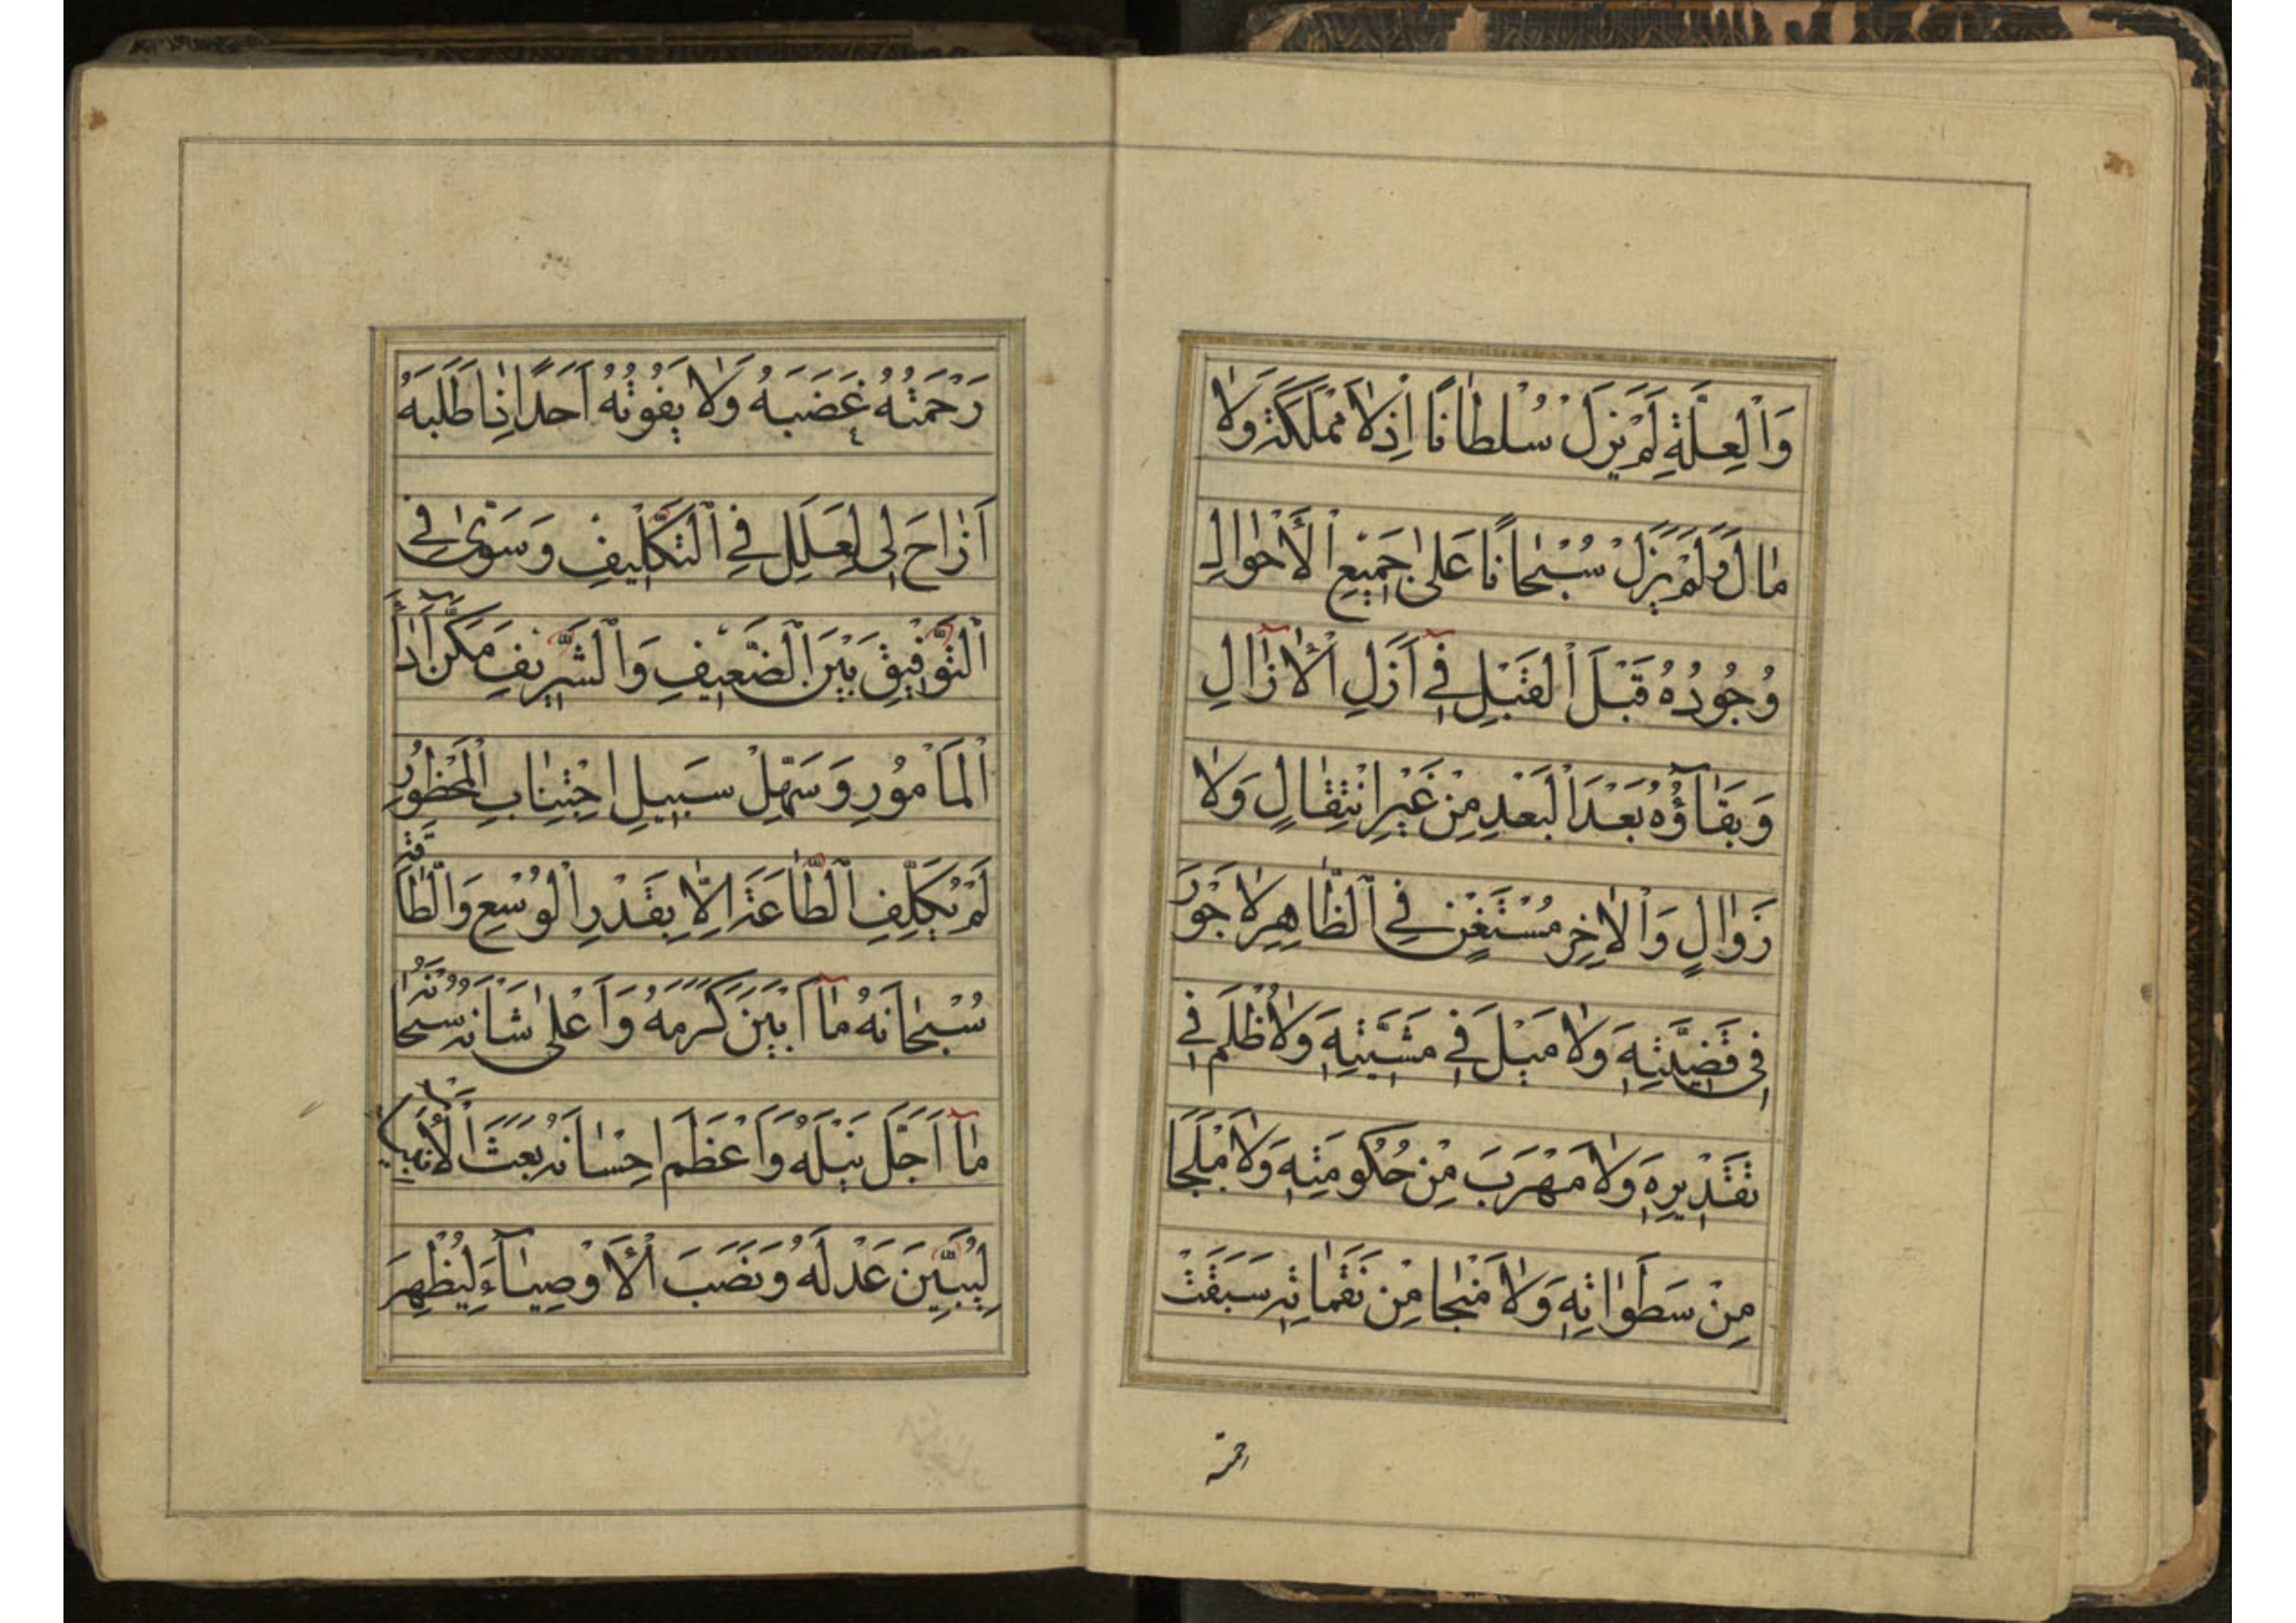 وَالْعِلَّةِ لَمْ يَزَلْ سُلْطَانًا اِذْ لَا مَمْلَكَةَ وَلَا
مَالَ وَلَمْ يَزَلْ سُبْحَانًا عَلَى جَمِيْعِ الْأَحْوَالِ
وُجُودُهُ قَبْلَ الْقَبْلِ فِي أَزَلِ الْاٰزَالِ
وَبَقَاؤُهُ بَعْدَ الْبَعْدِ مِنْ غَيْرِ انْتِقَالٍ وَلَا
زَوَالٍ وَالْاٰخِرِ مُسْتَغْنٍ فِي الظَّاهِرِ لَا جَوْرَ
فِي قَضِيَّتِهِ وَلَا مَيْلَ فِي مَشِيَّتِهِ وَلَا ظُلْمَ فِي
تَقْدِيْرِهِ وَلَا مَهْرَبَ مِنْ حُكُومَتِهِ وَلَا مَلْجَا
مِنْ سَطَوَاتِهِ وَلَا مَنْجَا مِنْ نَقِمَاتِهِ سَبَقَتْ
رَحْمَتُهُ غَضَبَهُ وَلَا يَفُوتُهُ اَحَدًا اِذَا طَلَبَهُ
اَزَاحَ لِي لِعَلَلِ فِي التَّكْلِيفِ وَسَوّٰى فِي
التَّوْفِيقِ بَيْنَ الضَّعِيفِ وَالشَّرِيفِ مَكَّنَ أَدَاءَ
الْمَأْمُورِ وَسَهَّلَ سَبِيلِ اجْتِنَابِ الْمَحْظُورِ
لَمْ يُكَلِّفِ الطَّاعَةَ اِلَّا بِقَدْرِ الْوُسْعِ وَالطَّاقَةِ
سُبْحَانَهُ مَا اَبْيَنَ كَرَمَهُ وَاَعْلَى شَانَهُ سُبْحَانَهُ
مَا اَجَلَّ نَيْلَهُ وَاَعْظَمَ اِحْسَانَهُ بَعَثَ الْأَنْبِيَاءَ
لِيُبَيِّنَ عَدْلَهُ وَنَصَبَ الْأَوْصِيَاءَ لِيُظْهِرَ